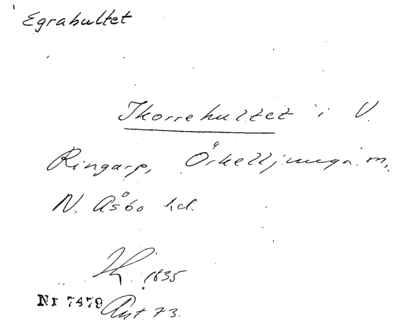 Egrahultet
Ikorrehultet i V.
Ringarp, Örkelljunga sn,
N. Åsbo hd.
1835
Nr 7479 Ant 73.